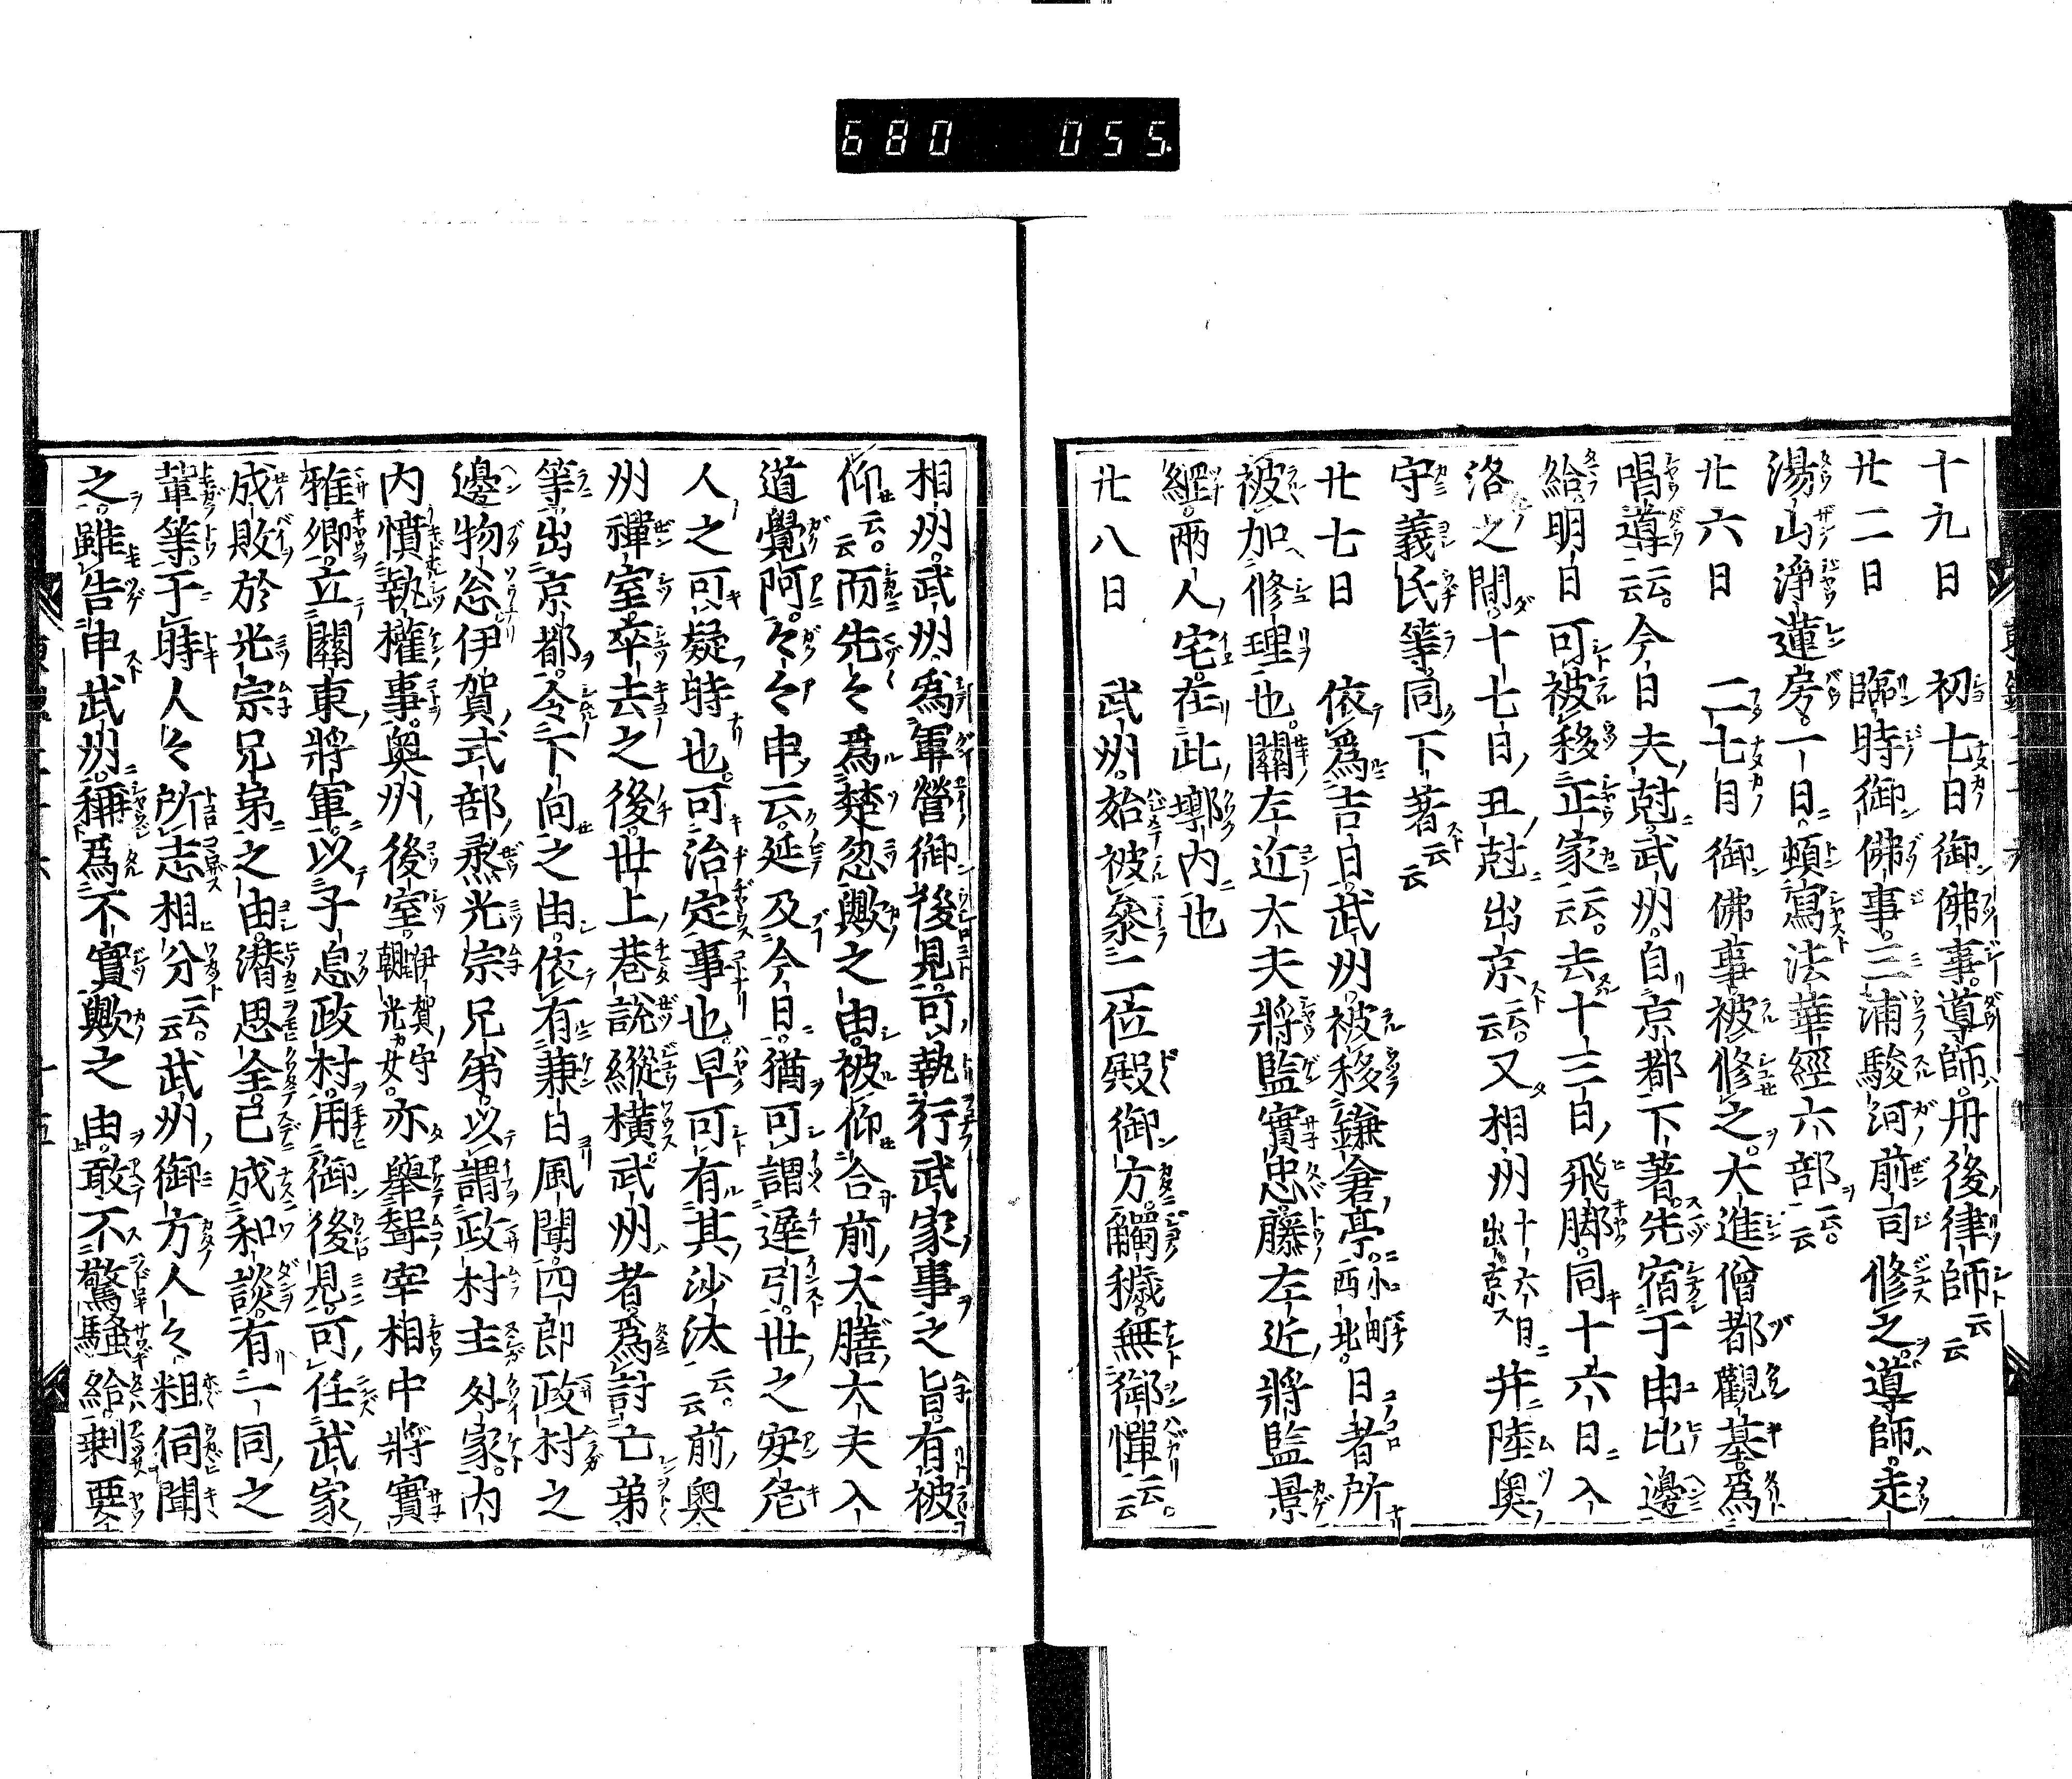 680 055
十九日　初七日御佛事導師丹後律師云云
廿二日　臨時御佛事三浦駿河前司修之導師走
湯山淨蓮房一日頓寫法華經六部云云
廿六日　二七日御佛事被修之大進僧都觀基爲
唱導云云今日夫尅武州自京都下著先宿于由比邊
給明日可被移正家云云去十三日飛脚同十六日入
洛之間十七日丑尅出京云云又相州十六日出京并陸奥
守義氏等同下著云云
廿七日　依爲吉日武州被移鎌倉亭小町西北日者所
被加修理也關左近大夫將監實忠藤左近將監景
綱兩人宅在此墎内也
廿八日　武州始被參二位殿御方觸穢無御憚云云
相州武州爲軍營御後見可執行武家事之旨有被
仰云云而先々爲楚忽歟之由被仰合前大膳大夫入
道覺阿々々申云延及今日猶可謂遲引世之安危
人之可疑時也可治定事也早可有其沙汰云云前奥
州禪室卒去之後世上巷説縱横武州者爲討亡弟
等出京都令下向之由依有兼日風聞四郎政村之
邊物忩伊賀式部烝光宗兄弟以謂政村主外家内
内憤執權事奥州後室伊賀守朝光女亦擧聟宰相中將實
雅卿立關東將軍以子息政村用御後見可任武家
成敗於光宗兄弟之由潛思全已成和談有一同之
輩等于時人々所志相分云云武州御方人々粗伺聞
之雖告申武州稱爲不實歟之由敢不驚騷給剩要